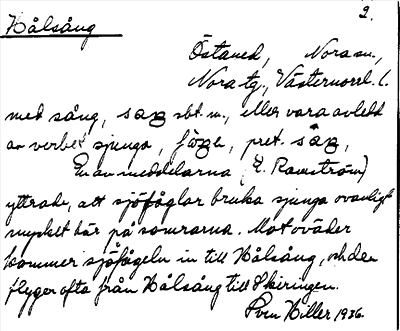 Hålsång 2.
Östaned, Nora sn.,
Nora tg., Västernorrl. l.
med sång, saŋ sbt. m., eller vara avledt
av verbet sjunga, pret.
En av meddelarna (E. Ramström)
yttrade, att sjöfåglar bruka sjunga ovanligt
mycket här på somrarna. Mot oväder
kommer sjöfågeln in till Hålsång, och den
flyger ofta från Hålsång till Skiringen.
Sven Hiller 1936.